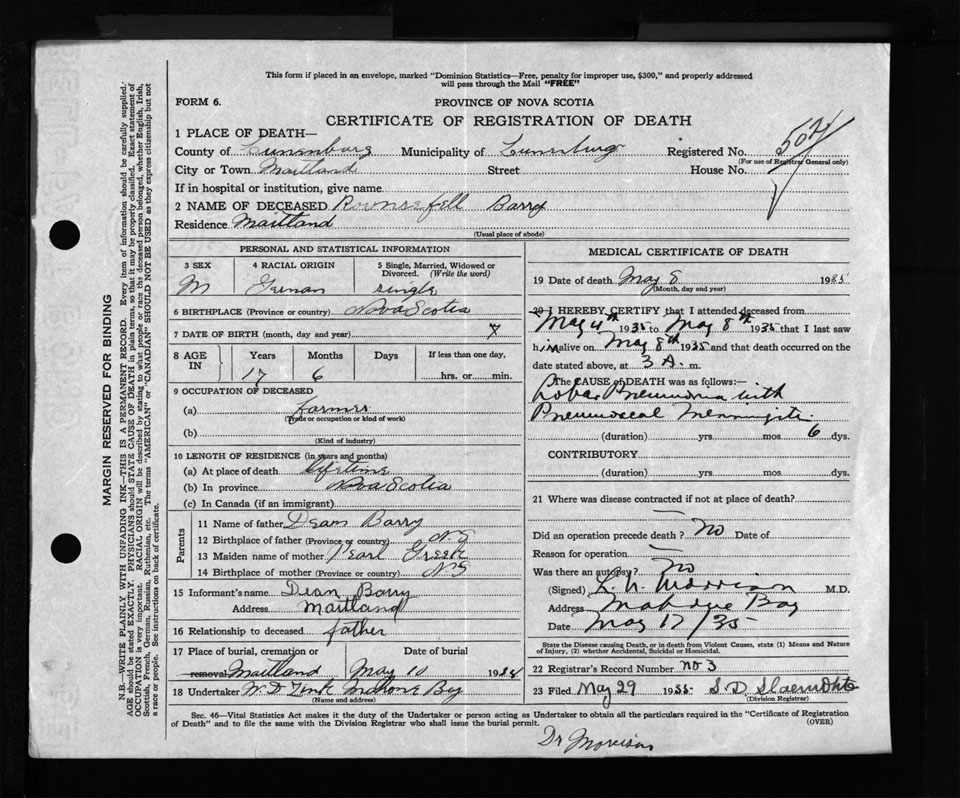 This form if placed in an envelope, marked "Dominion Statistics—Free, penalty for improper use, $300," and properly addressed
will pass through the Mail "FREE"
FORM 6.
PROVINCE OF NOVA SCOTIA
CERTIFICATE OF REGISTRATION OF DEATH
1 PLACE OF DEATH—
County of Lunenburg Municipality of Lunenburg Registered No. 504
(For use of Registrar General only)
City or Town Maitland Street House No.
If in hospital or institution, give name
2 NAME OF DECEASED Rounsefell Barry
Residence Maitland
(Usual place of abode)
PERSONAL AND STATISTICAL INFORMATION
3 SEX 4 RACIAL ORIGIN 5 Single, Married, Widowed or
Divorced. (Write the word)
M German single
6 BIRTHPLACE (Province or country) Nova Scotia
7 DATE OF BIRTH (month, day and year)
8 AGE IN Years Months Days If less than one day
17 6 hrs. or min.
9 OCCUPATION OF DECEASED
(a) farmer
(Trade or occupation or kind of work)
(b)
(Kind of industry)
10 LENGTH OF RESIDENCE (in years and months)
(a) At place of death lifetime
(b) In province Nova Scotia
(c) In Canada (if an immigrant)
Parents
11 Name of father Deam Barry
12 Birthplace of father (Province or country) N S
13 Maiden name of mother Pearl
14 Birthplace of mother (Province or country) N S
15 Informant's name Dean Barry
Address Maitland
16 Relationship to deceased father
17 Place of burial, cremation or Date of burial
removal Maitland May 10 19
18 Undertaker W. D. Zink Mahone Bay
(Name and address)
MEDICAL CERTIFICATE OF DEATH
19 Date of death May 8 1935
(Month, day and year)
20 I HEREBY CERTIFY that I attended deceased from
May 4th 1935 to May 8th 1935 that I last saw
him alive on May 8th 1935 and that death occurred on the
date stated above, at 3 A. m.
The CAUSE of DEATH was as follows:—
Lobar Pneumonia with
Pneumococcal Meningitis
(duration) yrs. mos. 6 dys.
CONTRIBUTORY
(duration) yrs. mos. dys.
21 Where was disease contracted if not at place of death?
Did an operation precede death? No Date of
Reason for operation
Was there an autopsy? No
(Signed) Morrison M.D.
Address Mahone Bay
Date May 17/35
State the Disease causing Death, or in death from Violent Causes, state (1) Means and Nature
of Injury, (2) whether Accidental, Suicidal or Homicidal.
22 Registrar's Record Number No 3
23 Filed May 29 1935 S. D.
(Division Registrar)
Sec. 46—Vital Statistics Act makes it the duty of the Undertaker or person acting as Undertaker to obtain all the particulars required in the "Certificate of Registration
of Death" and to file the same with the Division Registrar who shall issue the burial permit.
(OVER)
Dr Morrison
MARGIN RESERVED FOR BINDING
N.B.—WRITE PLAINLY WITH UNFADING INK—THIS IS A PERMANENT RECORD. Every item of information should be carefully supplied.
AGE should be stated EXACTLY. PHYSICIANS should STATE CAUSE OF DEATH in plain terms, so that it may be properly classified. Exact statement of
OCCUPATION is very important. RACIAL ORIGIN will be described by stating to what people or race the deceased person belonged, whether English, Irish,
Scottish, French, German, Russian, Ruthenian, etc. The terms "AMERICAN" or "CANADIAN" SHOULD NOT BE USED as they express citizenship but not
a race or people. See instructions on back of certificate.